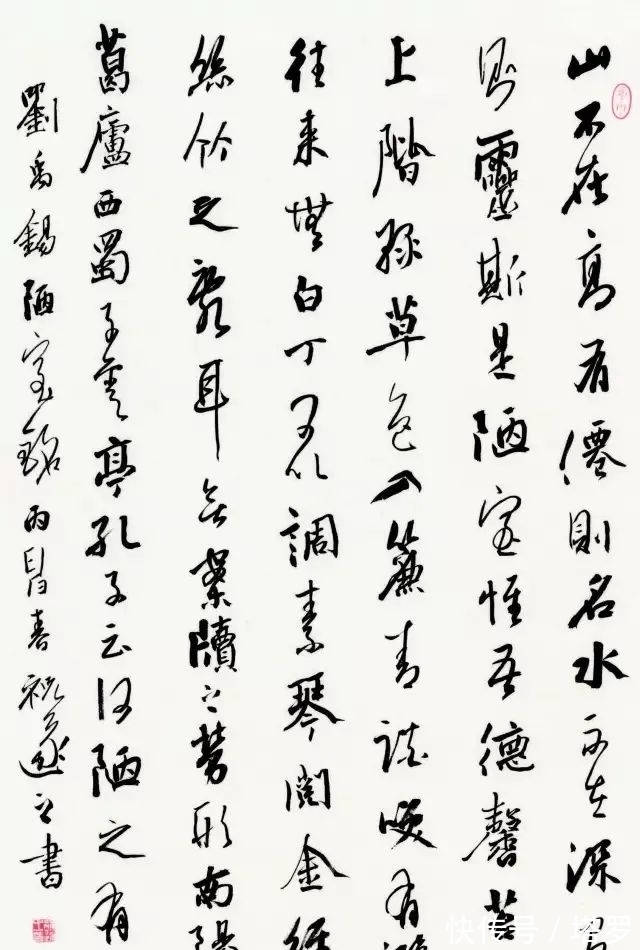 山不在高有僊則名水不在深
則靈斯是陋室惟吾德馨苔
上階緑草色入簾青談咲有鴻
往来無白丁可以調素琴閲金經
絲竹之亂耳無案牘之勞形南陽
葛廬西蜀子雲亭孔子云何陋之有
劉禹錫陋室銘丙申春祝遂之書
快传号 / 塔罗